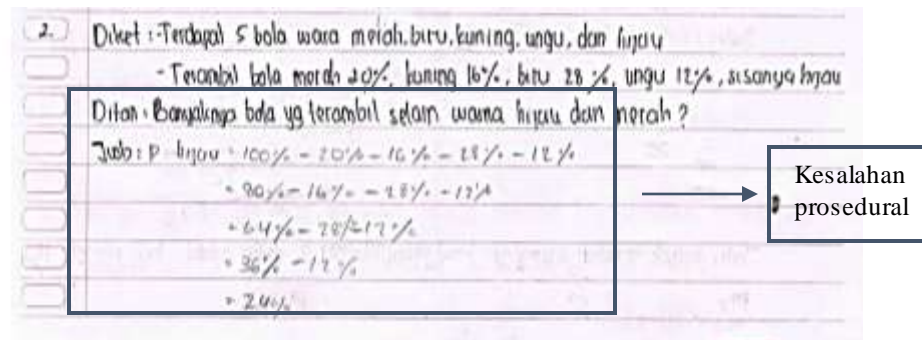 2. Diket : - Terdapat 5 bola warna merah, biru, kuning, ungu, dan hijau
- Terambil bola merah 20%, kuning 16%, biru 28%, ungu 12%, sisanya hijau
Ditan : Banyaknya bola yg terambil selain warna hijau dan merah ?
Jwb : P hijau = 100% - 20% - 16% - 28% - 12%
= 80% - 16% - 28% - 12%
= 64% - 28% - 12%
= 36% - 12%
= 24%
Kesalahan
prosedural